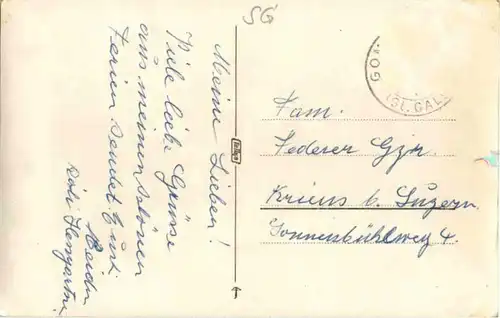 SG
Meine Lieben!
Viele liebe Grüsse
aus meinen schönen
Ferien sendet Euch
GOL
(ST. GAL
Fam.
Federer
Kriens b. Luzern
Sonnenbühlweg 4.